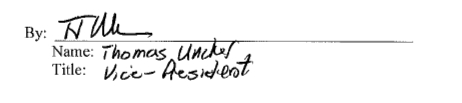 By:
Name: Thomas Unckel
Title: Vice-President